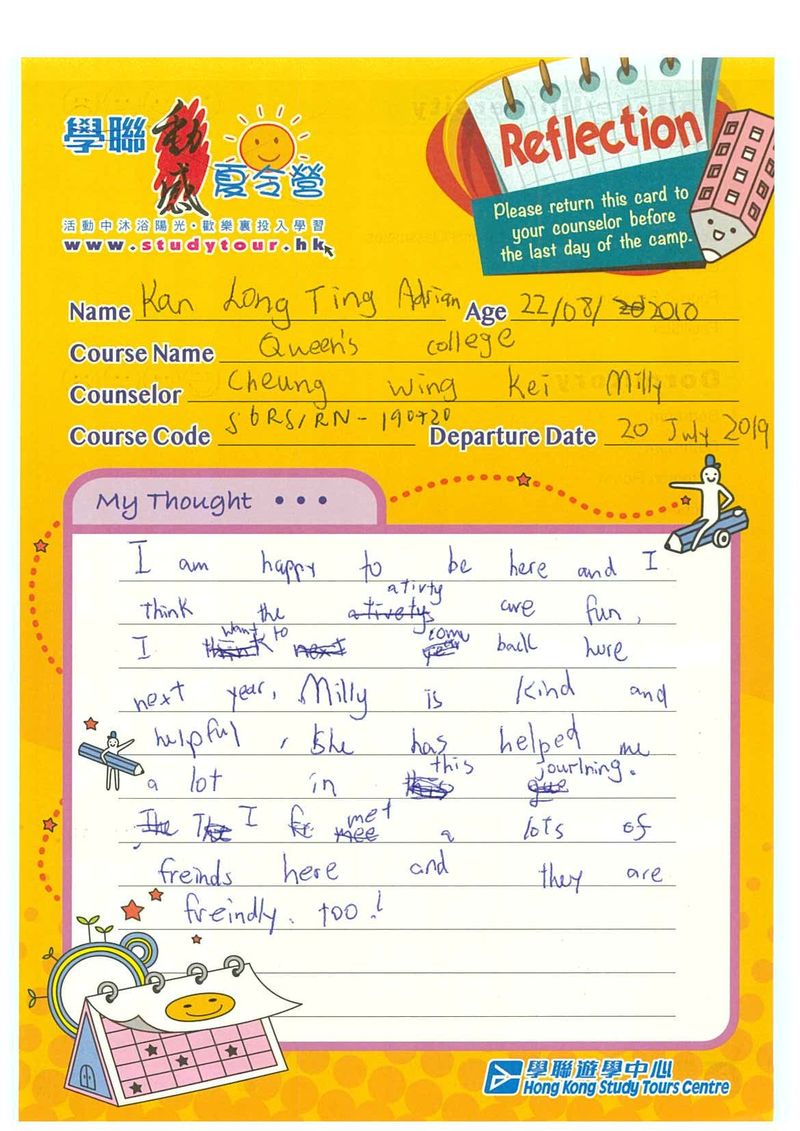 學聯 動感 夏令營
活動中沐浴陽光・歡樂裏投入學習
www.studytour.hk
Reflection
Please return this card to
your counselor before
the last day of the camp.
Name Kan Long Ting Adrian Age 22/08/ 2010
Course Name Queen's college
Counselor Cheung wing Kei Milly
Course Code SBRS/RN-190720 Departure Date 20 July 2019
My Thought • • •
I am happy to be here and I
think the ativty are fun,
I want to come back here
next year, Milly is kind and
helpful, She has helped me
a lot in this jourlning.
I met a lots of
freinds here and they are
freindly. too!
學聯遊學中心
Hong Kong Study Tours Centre